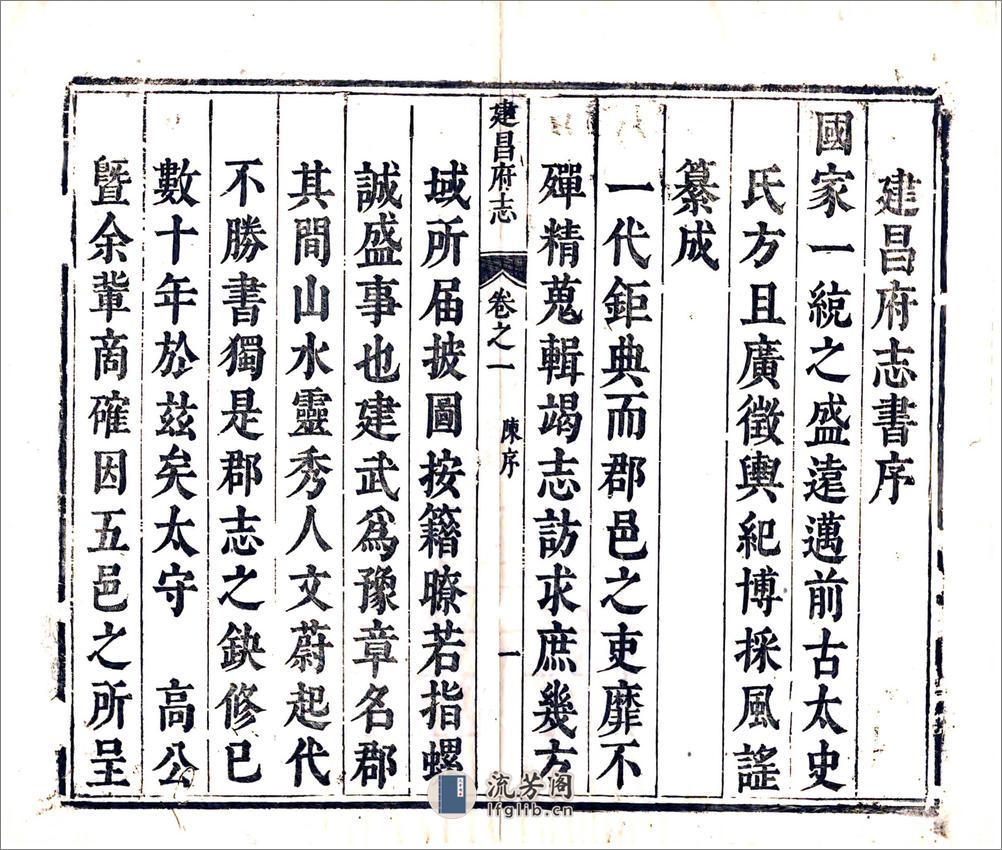 建昌府志書序
國家一統之盛遠邁前古太史
氏方且廣徵輿紀博採風謠
纂成
一代鉅典而郡邑之吏靡不
殫精蒐輯竭志訪求庶幾方
建昌府志 卷之一 陳序 一
域所届披圖按籍暸若指螺
誠盛事也建武爲豫章名郡
其間山水靈秀人文蔚起代
不勝書獨是郡志之缺修已
數十年於茲矣太守 高公
暨余輩商確因五邑之所呈
流芳阁
lfglib.cn